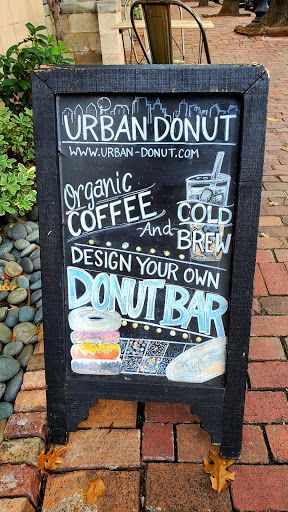 URBAN DONUT
WWW.URBAN-DONUT.COM
Organic
COFFEE And COLD
BREW
DESIGN YOUR OWN
DONUT BAR